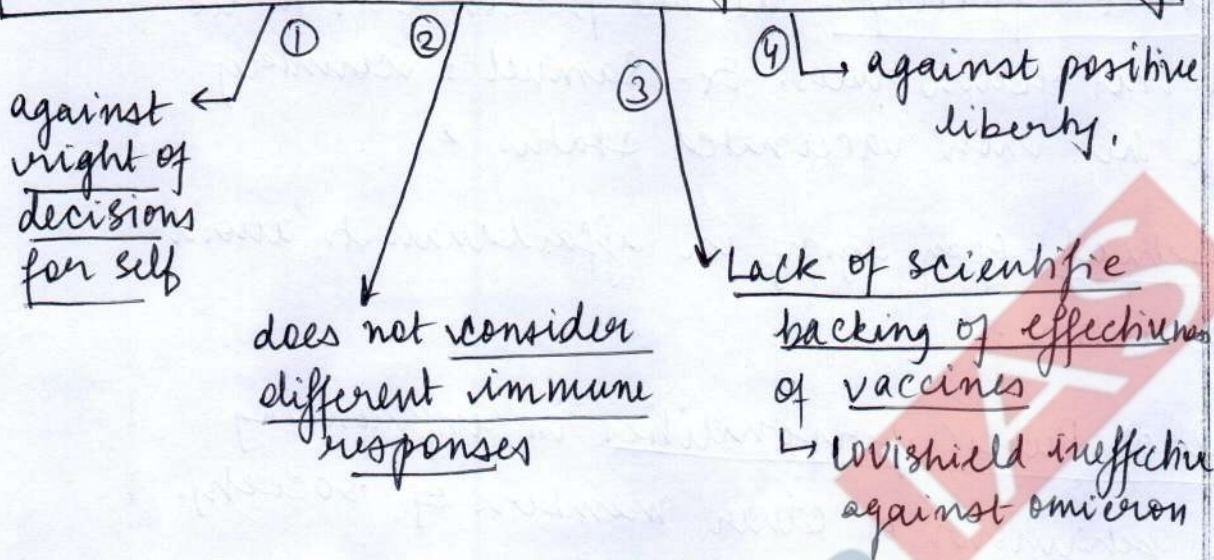 ①
against
right of
decisions
for self
②
does not consider
different immune
responses
③
Lack of scientific
backing of effectiveness
of vaccines
↳ Covishield ineffective
against omicron
④
↳ against positive
liberty.
IAS